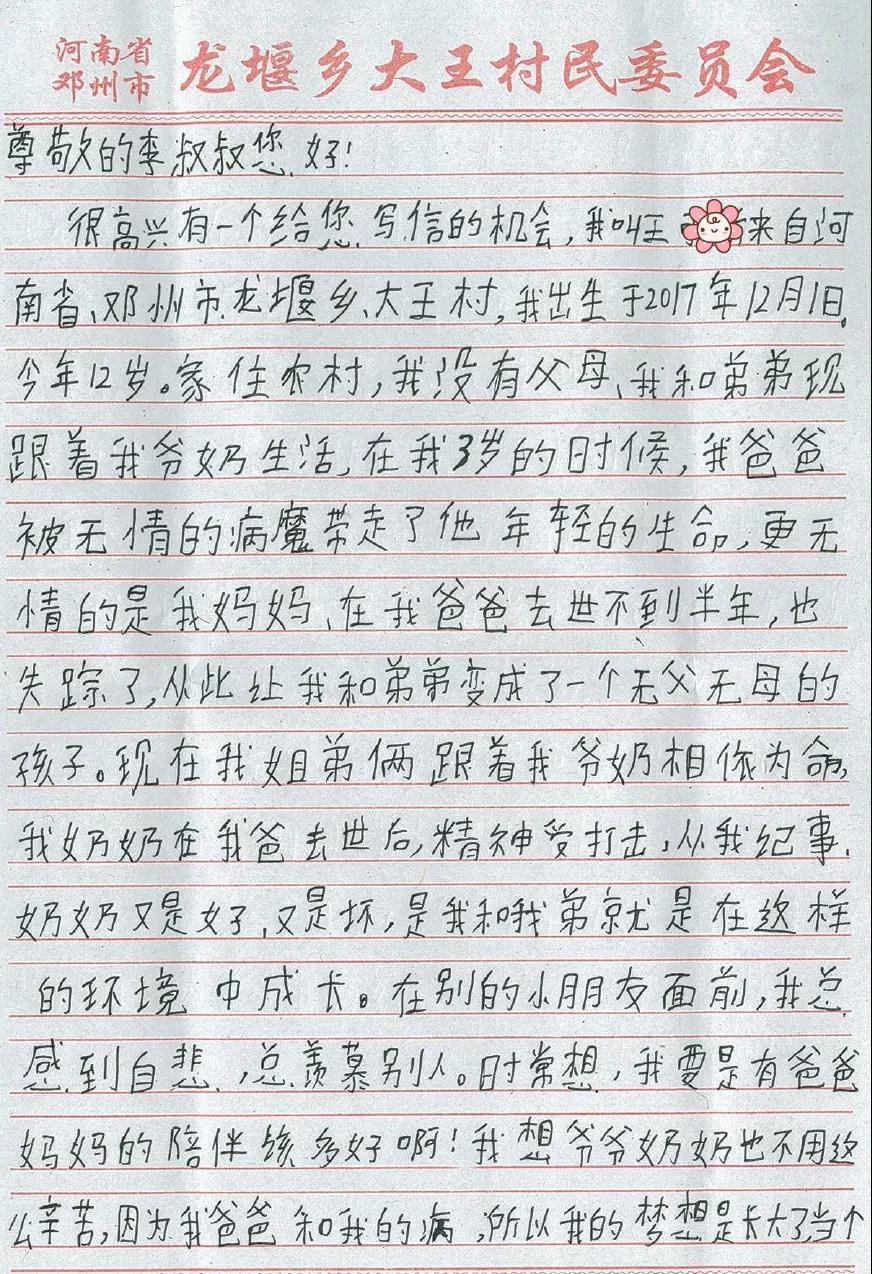 河南省
邓州市
龙堰乡大王村民委员会
尊敬的李叔叔您好!
很高兴有一个给您写信的机会,我叫王 来自河
南省、邓州市、龙堰乡、大王村,我出生于2017年12月1日,
今年12岁。家住农村,我没有父母、我和弟弟现
跟着我爷奶生活,在我3岁的时候,我爸爸
被无情的病魔带走了他年轻的生命,更无
情的是我妈妈、在我爸爸去世不到半年,也
失踪了,从此让我和弟弟变成了一个无父无母的
孩子。现在我姐弟俩跟着我爷奶相依为命,
我奶奶在我爸去世后,精神受打击,从我纪事、
奶奶又是好,又是坏,是我和我弟就是在这样
的环境中成长。在别的小朋友面前,我总
感到自悲,总羡慕别人。时常想,我要是有爸爸
妈妈的陪伴该多好啊!我想爷爷奶奶也不用这
么辛苦,因为我爸爸和我的病,所以我的梦想是长大了当个